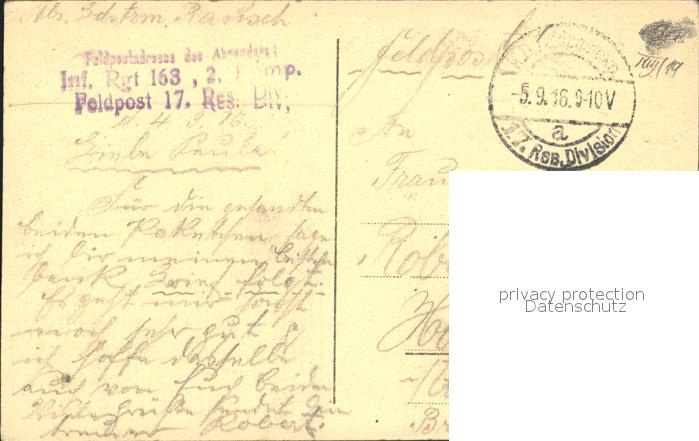 Abs. Ldstrm. Rausch
Feldpostadresse des Absenders:
Inf. Rgt 163, 2. Komp.
Feldpost 17. Res. Div.
d. 4 9. 16.
Liebe Paula
Für die gesandten
beiden Paketchen sage
ich Dir meinen besten
dank Brief folgt.
Es geht mir sonst
noch sehr gut
ich hoffe dasselbe
auch von Euch beiden
Viele grüße sendet dein
treuer Robert.
Feldpost
-5.9.16.9-10V
a
17. Res. Division
An
Frau
privacy protection
Datenschutz